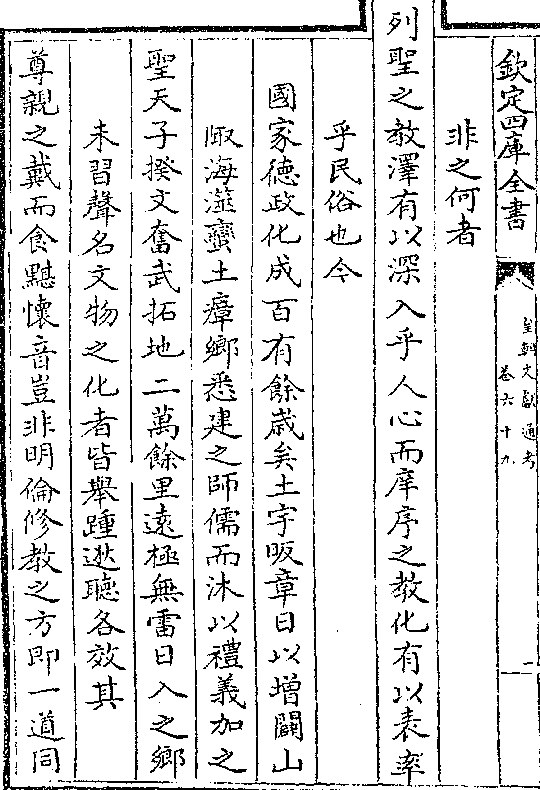 欽定四庫全書
皇朝文獻通考
卷六十九
一
非之何者
列聖之教澤有以深入乎人心而庠序之教化有以表率
乎民俗也今
國家德政化成百有餘歲矣土宇昄章日以増闢山
陬海澨蠻土瘴鄉悉建之師儒而沐以禮義加之
聖天子揆文奮武拓地二萬餘里遠極無雷日入之鄉
未習聲名文物之化者皆舉踵逖聽各效其
尊親之戴而食黮懷音豈非明倫修教之方即一道同